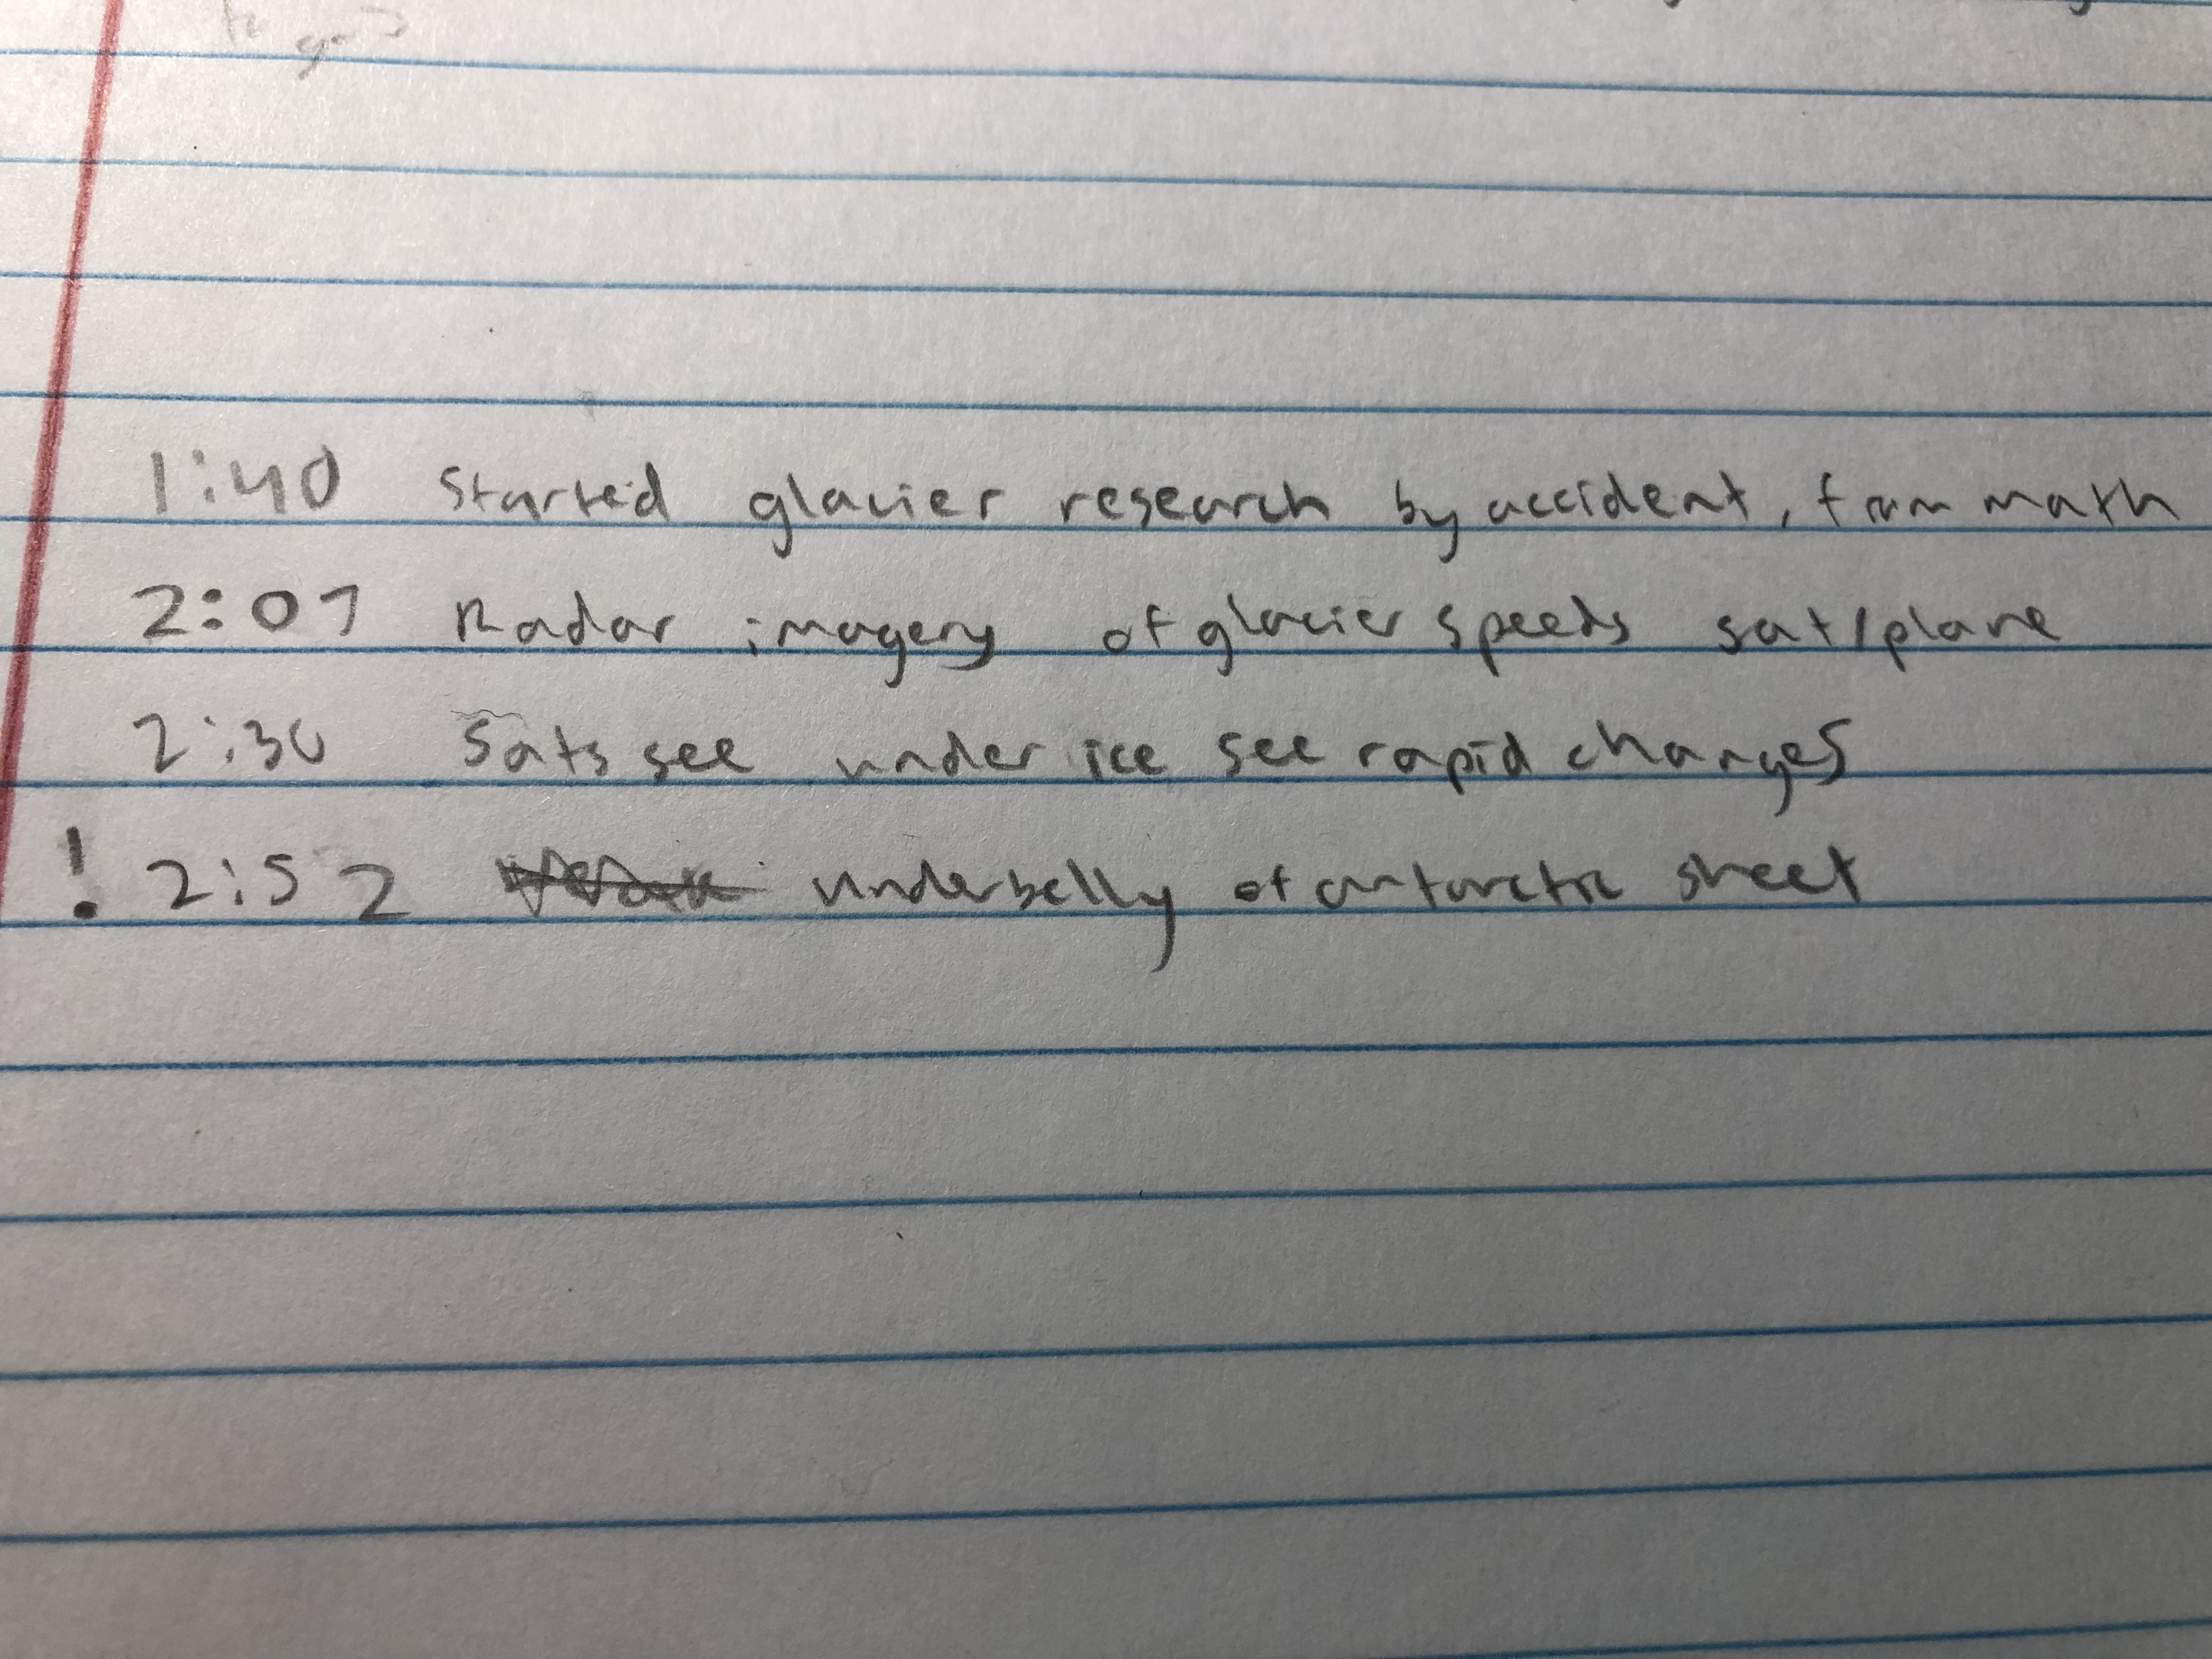 1:40 Started glacier research by accident, from math
2:07 Radar imagery of glacier speeds sat/plane
2:30 Sats see under ice see rapid changes
! 2:52 underbelly of antarctic sheet